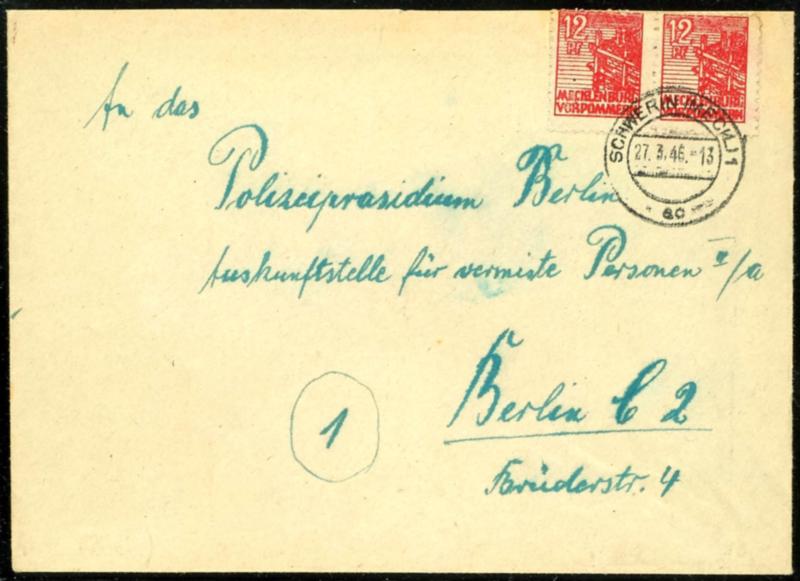 12 Pf
MECKLENBURG
VORPOMMERN
12 Pf
MECKLENBURG
VORPOMMERN
SCHWERIN (MECKL) 1
27. 3. 46.-13
* ac *
An das
Polizeipräsidium Berlin
Auskunftstelle für vermiste Personen II/a
1
Berlin C 2
Brüderstr. 4